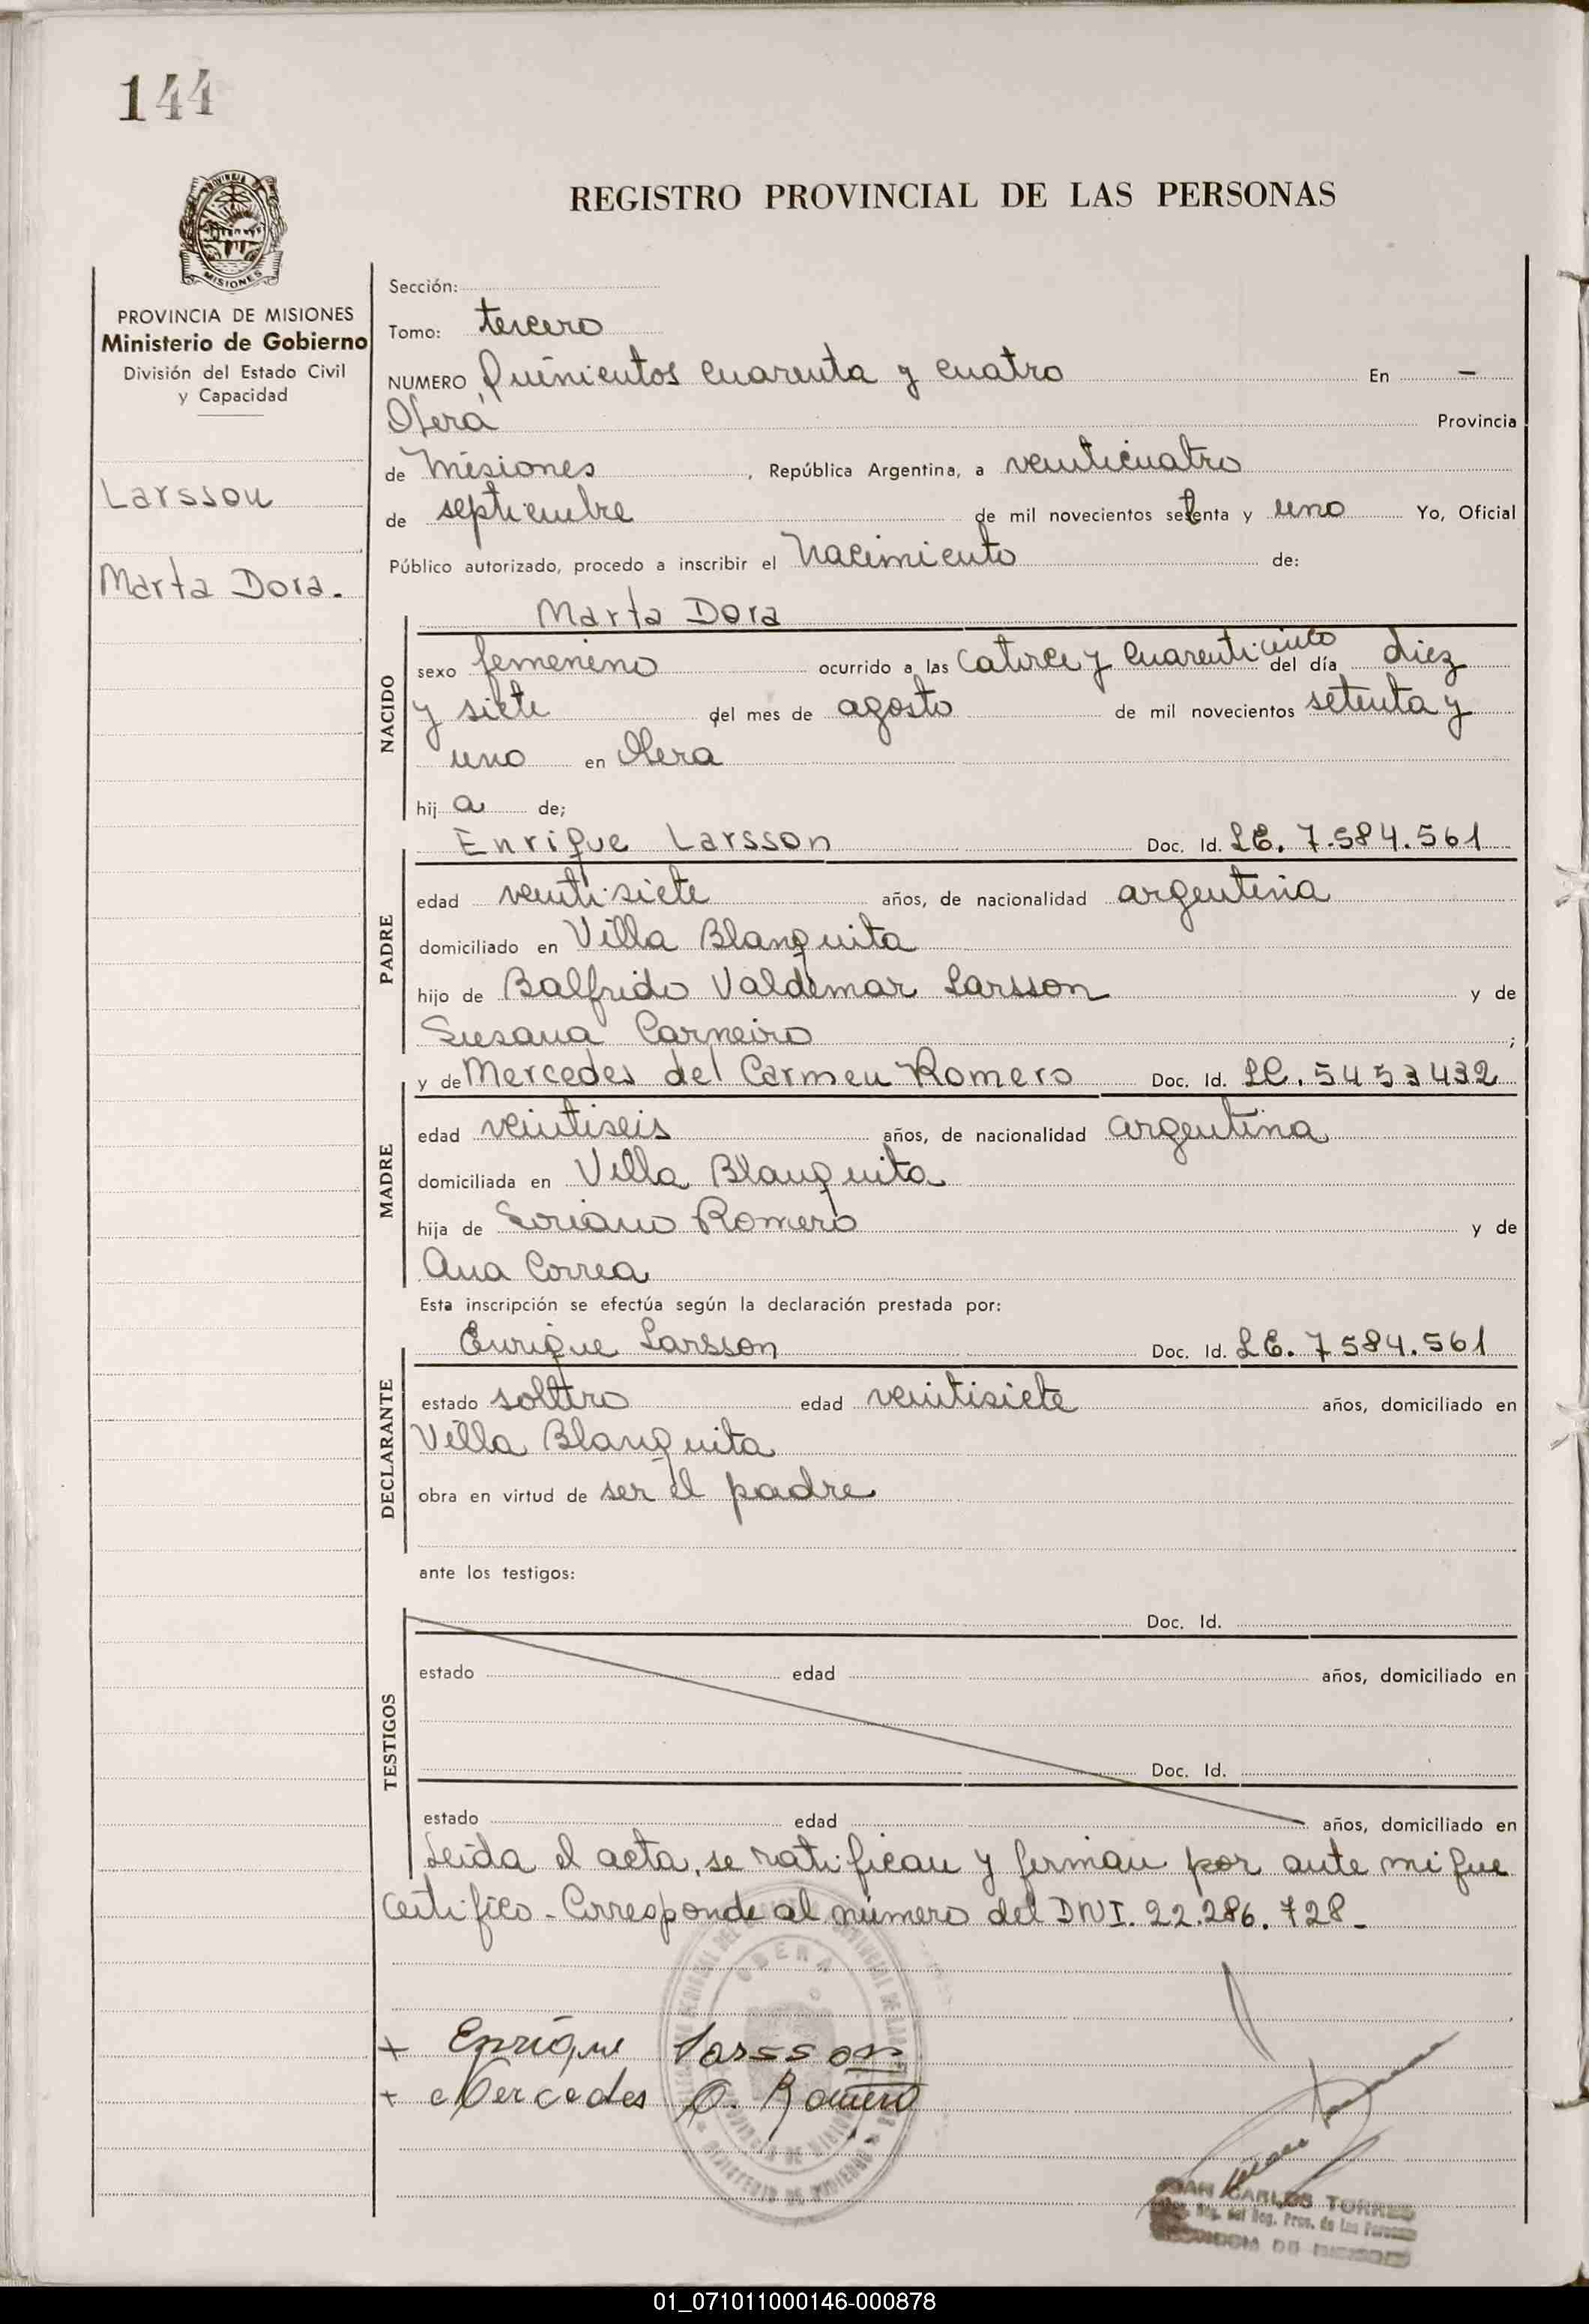 144
REGISTRO PROVINCIAL DE LAS PERSONAS
PROVINCIA DE MISIONES
MISIONES
PROVINCIA DE MISIONES
Ministerio de Gobierno
División del Estado Civil
y Capacidad
Larsson
Marta Dora.
Sección:
Tomo: tercero
NUMERO Quinientos cuarenta y cuatro En -
Oberá Provincia
de Misiones, República Argentina, a veinticuatro
de septiembre de mil novecientos setenta y uno Yo, Oficial
Público autorizado, procedo a inscribir el Nacimiento de:
NACIDO
Marta Dora
sexo femenino ocurrido a las catorce y cuarenticinco del día diez
y siete del mes de agosto de mil novecientos setenta y
uno en Oberá
hij a de;
PADRE
Enrique Larsson Doc. Id. LE. 7.584.561
edad veintisiete años, de nacionalidad argentina
domiciliado en Villa Blanquita
hijo de Balfrido Valdemar Larsson y de
Susana Carneiro ;
MADRE
y de Mercedes del Carmen Romero Doc. Id. LC. 5453432
edad veintiseis años, de nacionalidad argentina
domiciliada en Villa Blanquita
hija de Soriano Romero y de
Ana Correa
Esta inscripción se efectúa según la declaración prestada por:
DECLARANTE
Enrique Larsson Doc. Id. LE. 7584.561
estado soltero edad veintisiete años, domiciliado en
Villa Blanquita
obra en virtud de ser el padre
ante los testigos:
TESTIGOS
Doc. Id.
estado edad años, domiciliado en
Doc. Id.
estado edad años, domiciliado en
Leida el acta, se ratifican y firman por ante mi que
certifico - Corresponde al número del DNI. 22.286.728_
OBERA
PROVINCIA DE MISIONES
MINISTERIO DE GOBIERNO
+ Enrique Larsson
+ Mercedes C. Romero
JUAN CARLOS TORRES
Reg. del Reg. Prov. de las Personas
PROVINCIA DE MISIONES
01_071011000146-000878